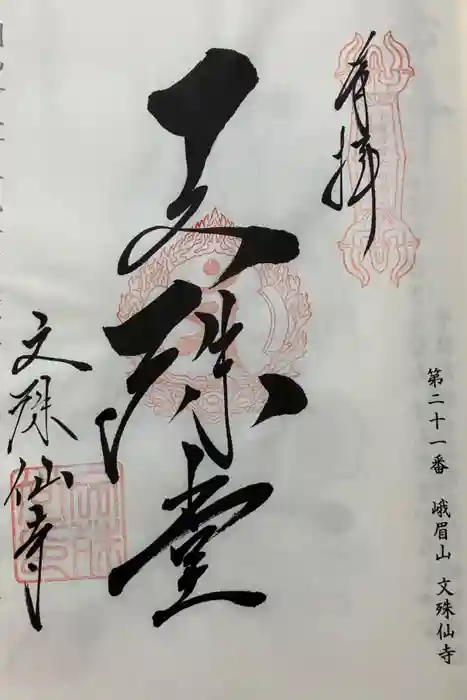 第二十一番 峨眉山 文殊仙寺
奉拝
文殊堂
文殊仙寺